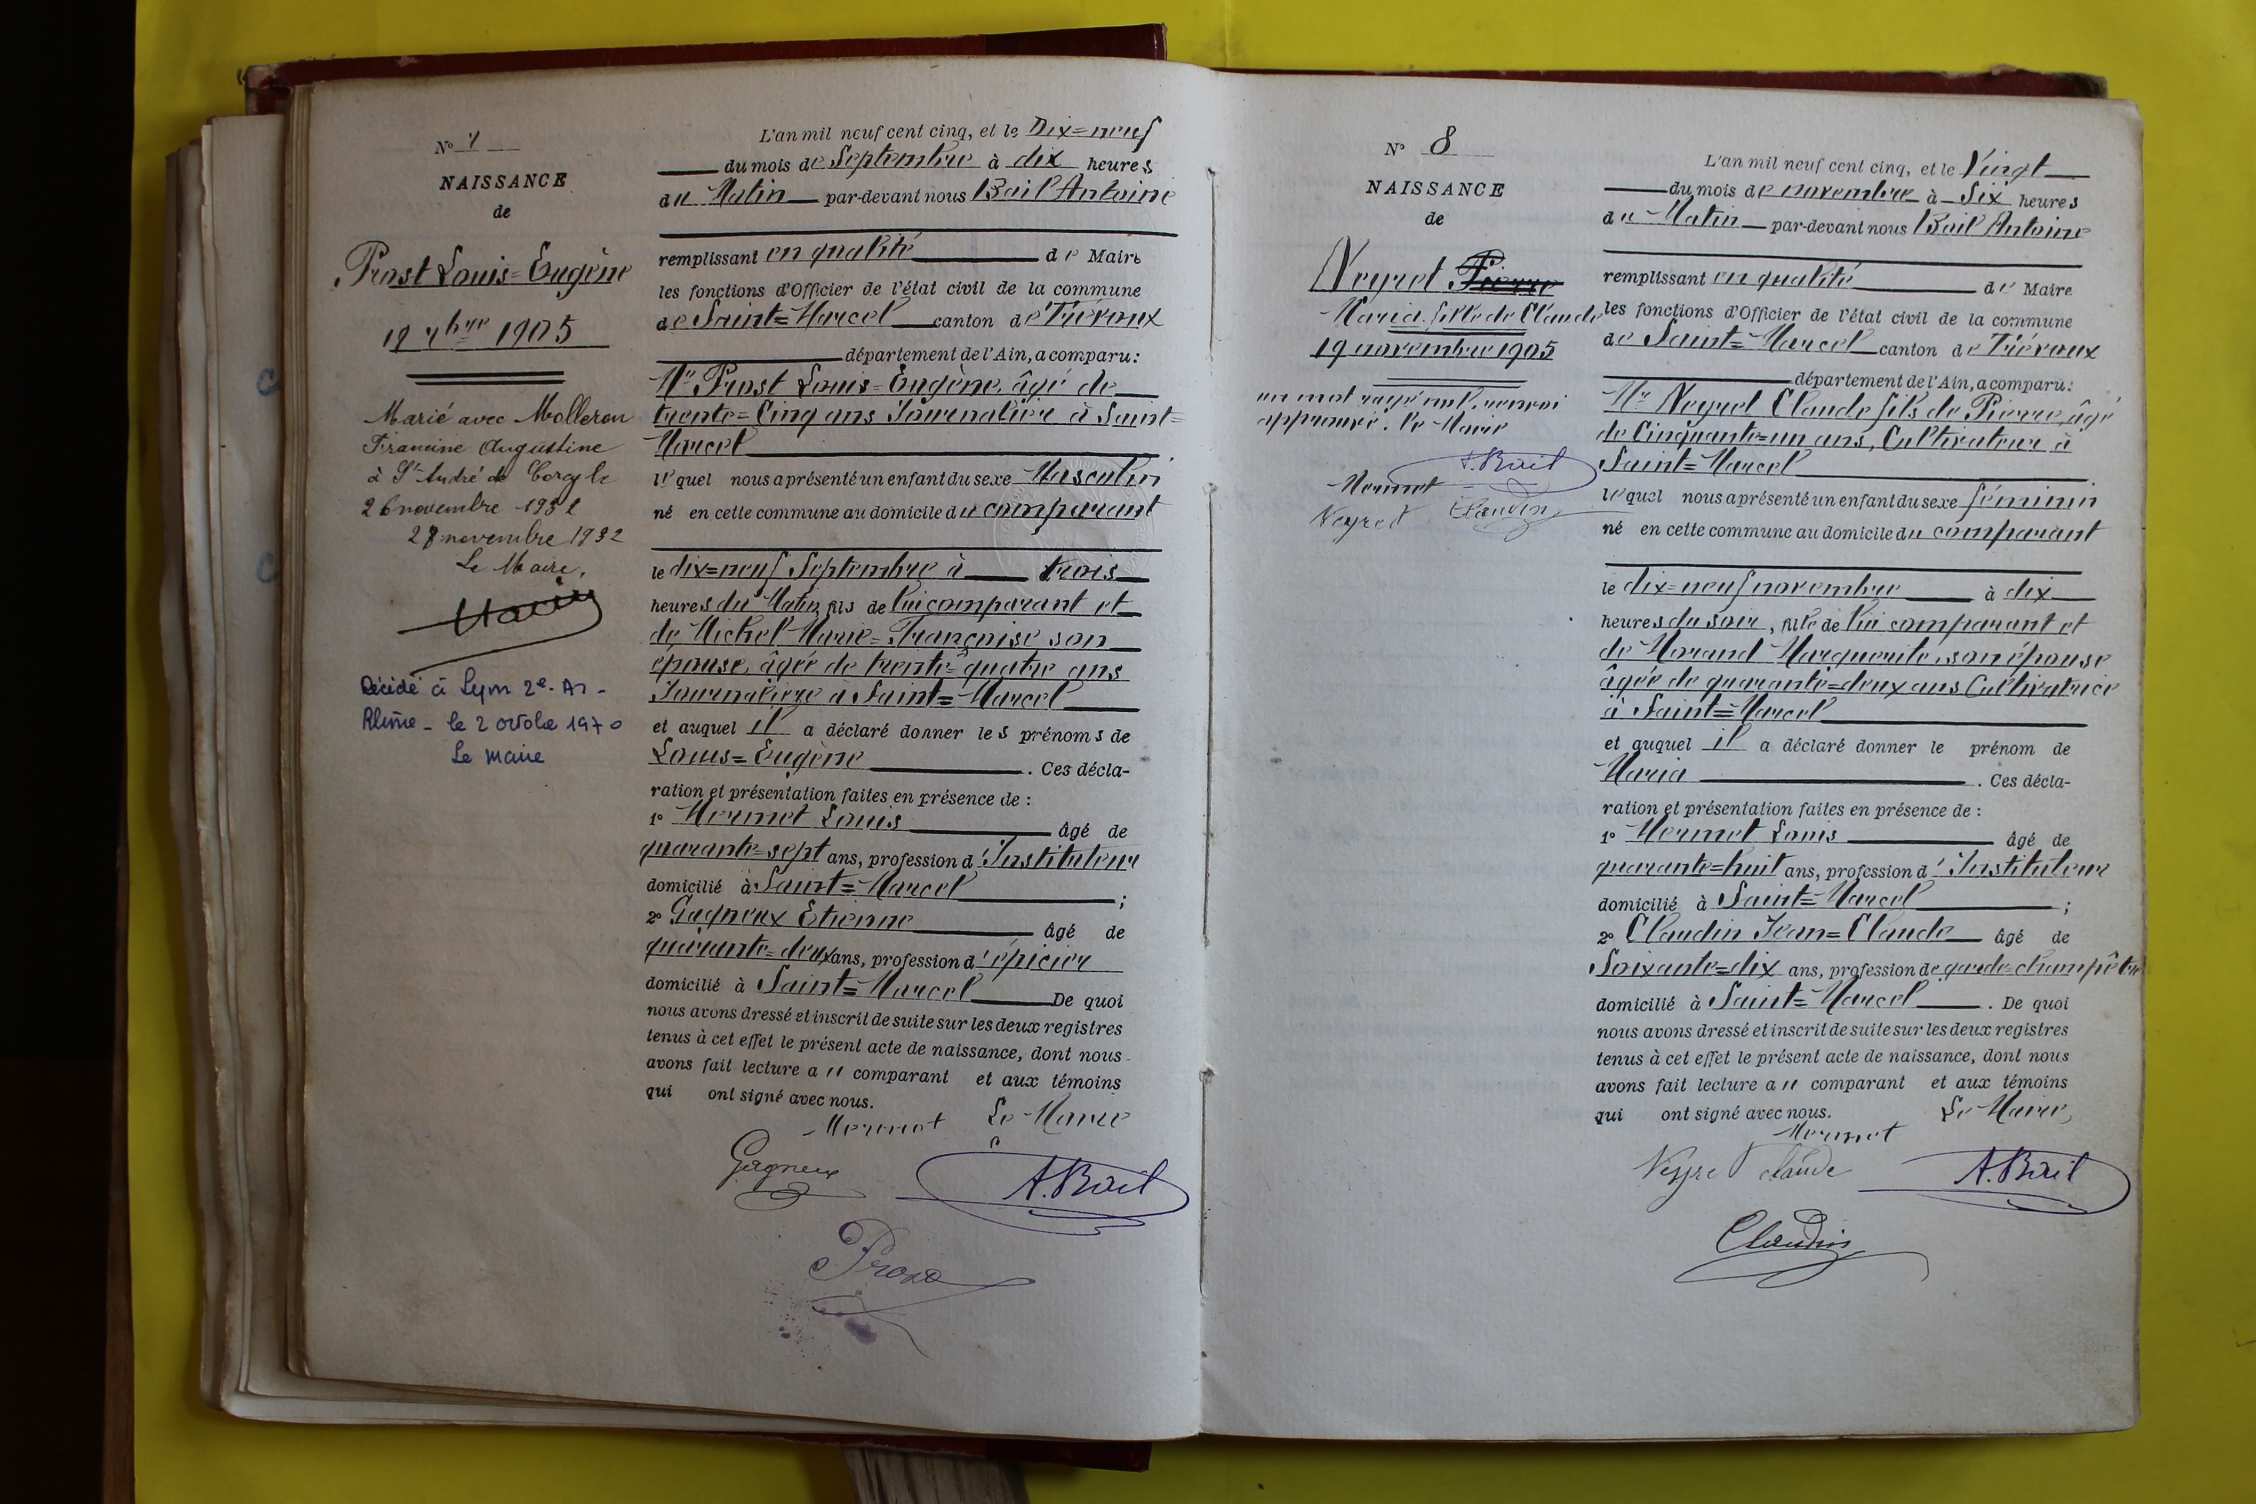 N° 7
NAISSANCE
de
Prost Louis=Eugène
19 7bre 1905
Marié avec Molleron
Francine Augustine
à St André de Corcy le
26 novembre 1932
28 novembre 1932
Le Maire,
Décédé à Lyon 2e - Ar -
Rhône - le 2 octobre 1970
Le maire
L'an mil neuf cent cinq, et le Dix=neuf
du mois de Septembre à dix heures
du Matin par-devant nous Bail Antoine
remplissant en qualité de Maire
les fonctions d'Officier de l'état civil de la commune
de Saint=Marcel canton de Trévoux
département de l'Ain, a comparu:
Mr Prost Louis=Eugène, âgé de
trente=Cinq ans Journalier à Saint=
Marcel
lequel nous a présenté un enfant du sexe Masculin
né en cette commune au domicile du comparant
le dix=neuf Septembre à trois
heures du Matin, fils de lui comparant et
de Michel Marie=Françoise son
épouse, âgée de trente=quatre ans
Journalière à Saint=Marcel
et auquel il a déclaré donner les prénoms de
Louis=Eugène . Ces décla-
ration et présentation faites en présence de :
1° Mermet Louis âgé de
quarante=sept ans, profession d'Instituteur
domicilié à Saint=Marcel ;
2° Gagneux Etienne âgé de
quarante=deux ans, profession d'épicier
domicilié à Saint=Marcel De quoi
nous avons dressé et inscrit de suite sur les deux registres
tenus à cet effet le présent acte de naissance, dont nous
avons fait lecture au comparant et aux témoins
qui ont signé avec nous.
Mermet Le Maire
Gagneux A. Bail
Prost
N° 8
NAISSANCE
de
Neyret Pierre
Maria fille de Claude
19 novembre 1905
un mot rayé nul, renvoi
approuvé. Le Maire
A. Bail
Mermet
Neyret Claudin
L'an mil neuf cent cinq, et le Vingt
du mois de novembre à Six heures
du Matin par-devant nous Bail Antoine
remplissant en qualité de Maire
les fonctions d'Officier de l'état civil de la commune
de Saint=Marcel canton de Trévoux
département de l'Ain, a comparu:
Mr Neyret Claude fils de Pierre, âgé
de Cinquante=un ans, Cultivateur à
Saint=Marcel
lequel nous a présenté un enfant du sexe féminin
né en cette commune au domicile du comparant
le dix=neuf novembre à dix
heures du soir, fille de lui comparant et
de Morand Marguerite, son épouse
âgée de quarante=deux ans Cultivatrice
à Saint=Marcel
et auquel il a déclaré donner le prénom de
Maria . Ces décla-
ration et présentation faites en présence de :
1° Mermet Louis âgé de
quarante=huit ans, profession d'Instituteur
domicilié à Saint=Marcel ;
2° Claudin Jean=Claude âgé de
Soixante=dix ans, profession de garde=champêtre
domicilié à Saint=Marcel . De quoi
nous avons dressé et inscrit de suite sur les deux registres
tenus à cet effet le présent acte de naissance, dont nous
avons fait lecture au comparant et aux témoins
qui ont signé avec nous. Le Maire,
Mermet
Neyret Claude A. Bail
Claudin